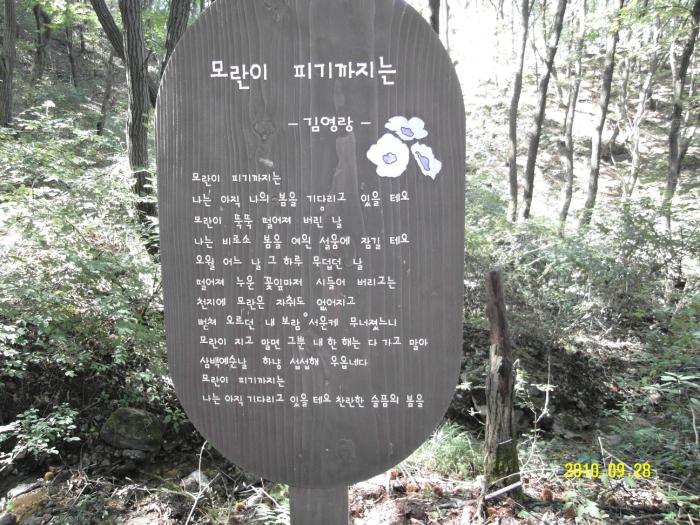 모란이 피기까지는
- 김영랑 -
모란이 피기까지는
나는 아직 나의 봄을 기다리고 있을 테요
모란이 뚝뚝 떨어져 버린 날
나는 비로소 봄을 여읜 설움에 잠길 테요
오월 어느 날 그 하루 무덥던 날
떨어져 누운 꽃잎마저 시들어 버리고는
천지에 모란은 자취도 없어지고
뻗쳐 오르던 내 보람 서운케 무너졌느니
모란이 지고 말면 그뿐 내 한 해는 다 가고 말아
삼백예순날 하냥 섭섭해 우옵네다
모란이 피기까지는
나는 아직 기다리고 있을 테요 찬란한 슬픔의 봄을
2010.09.28